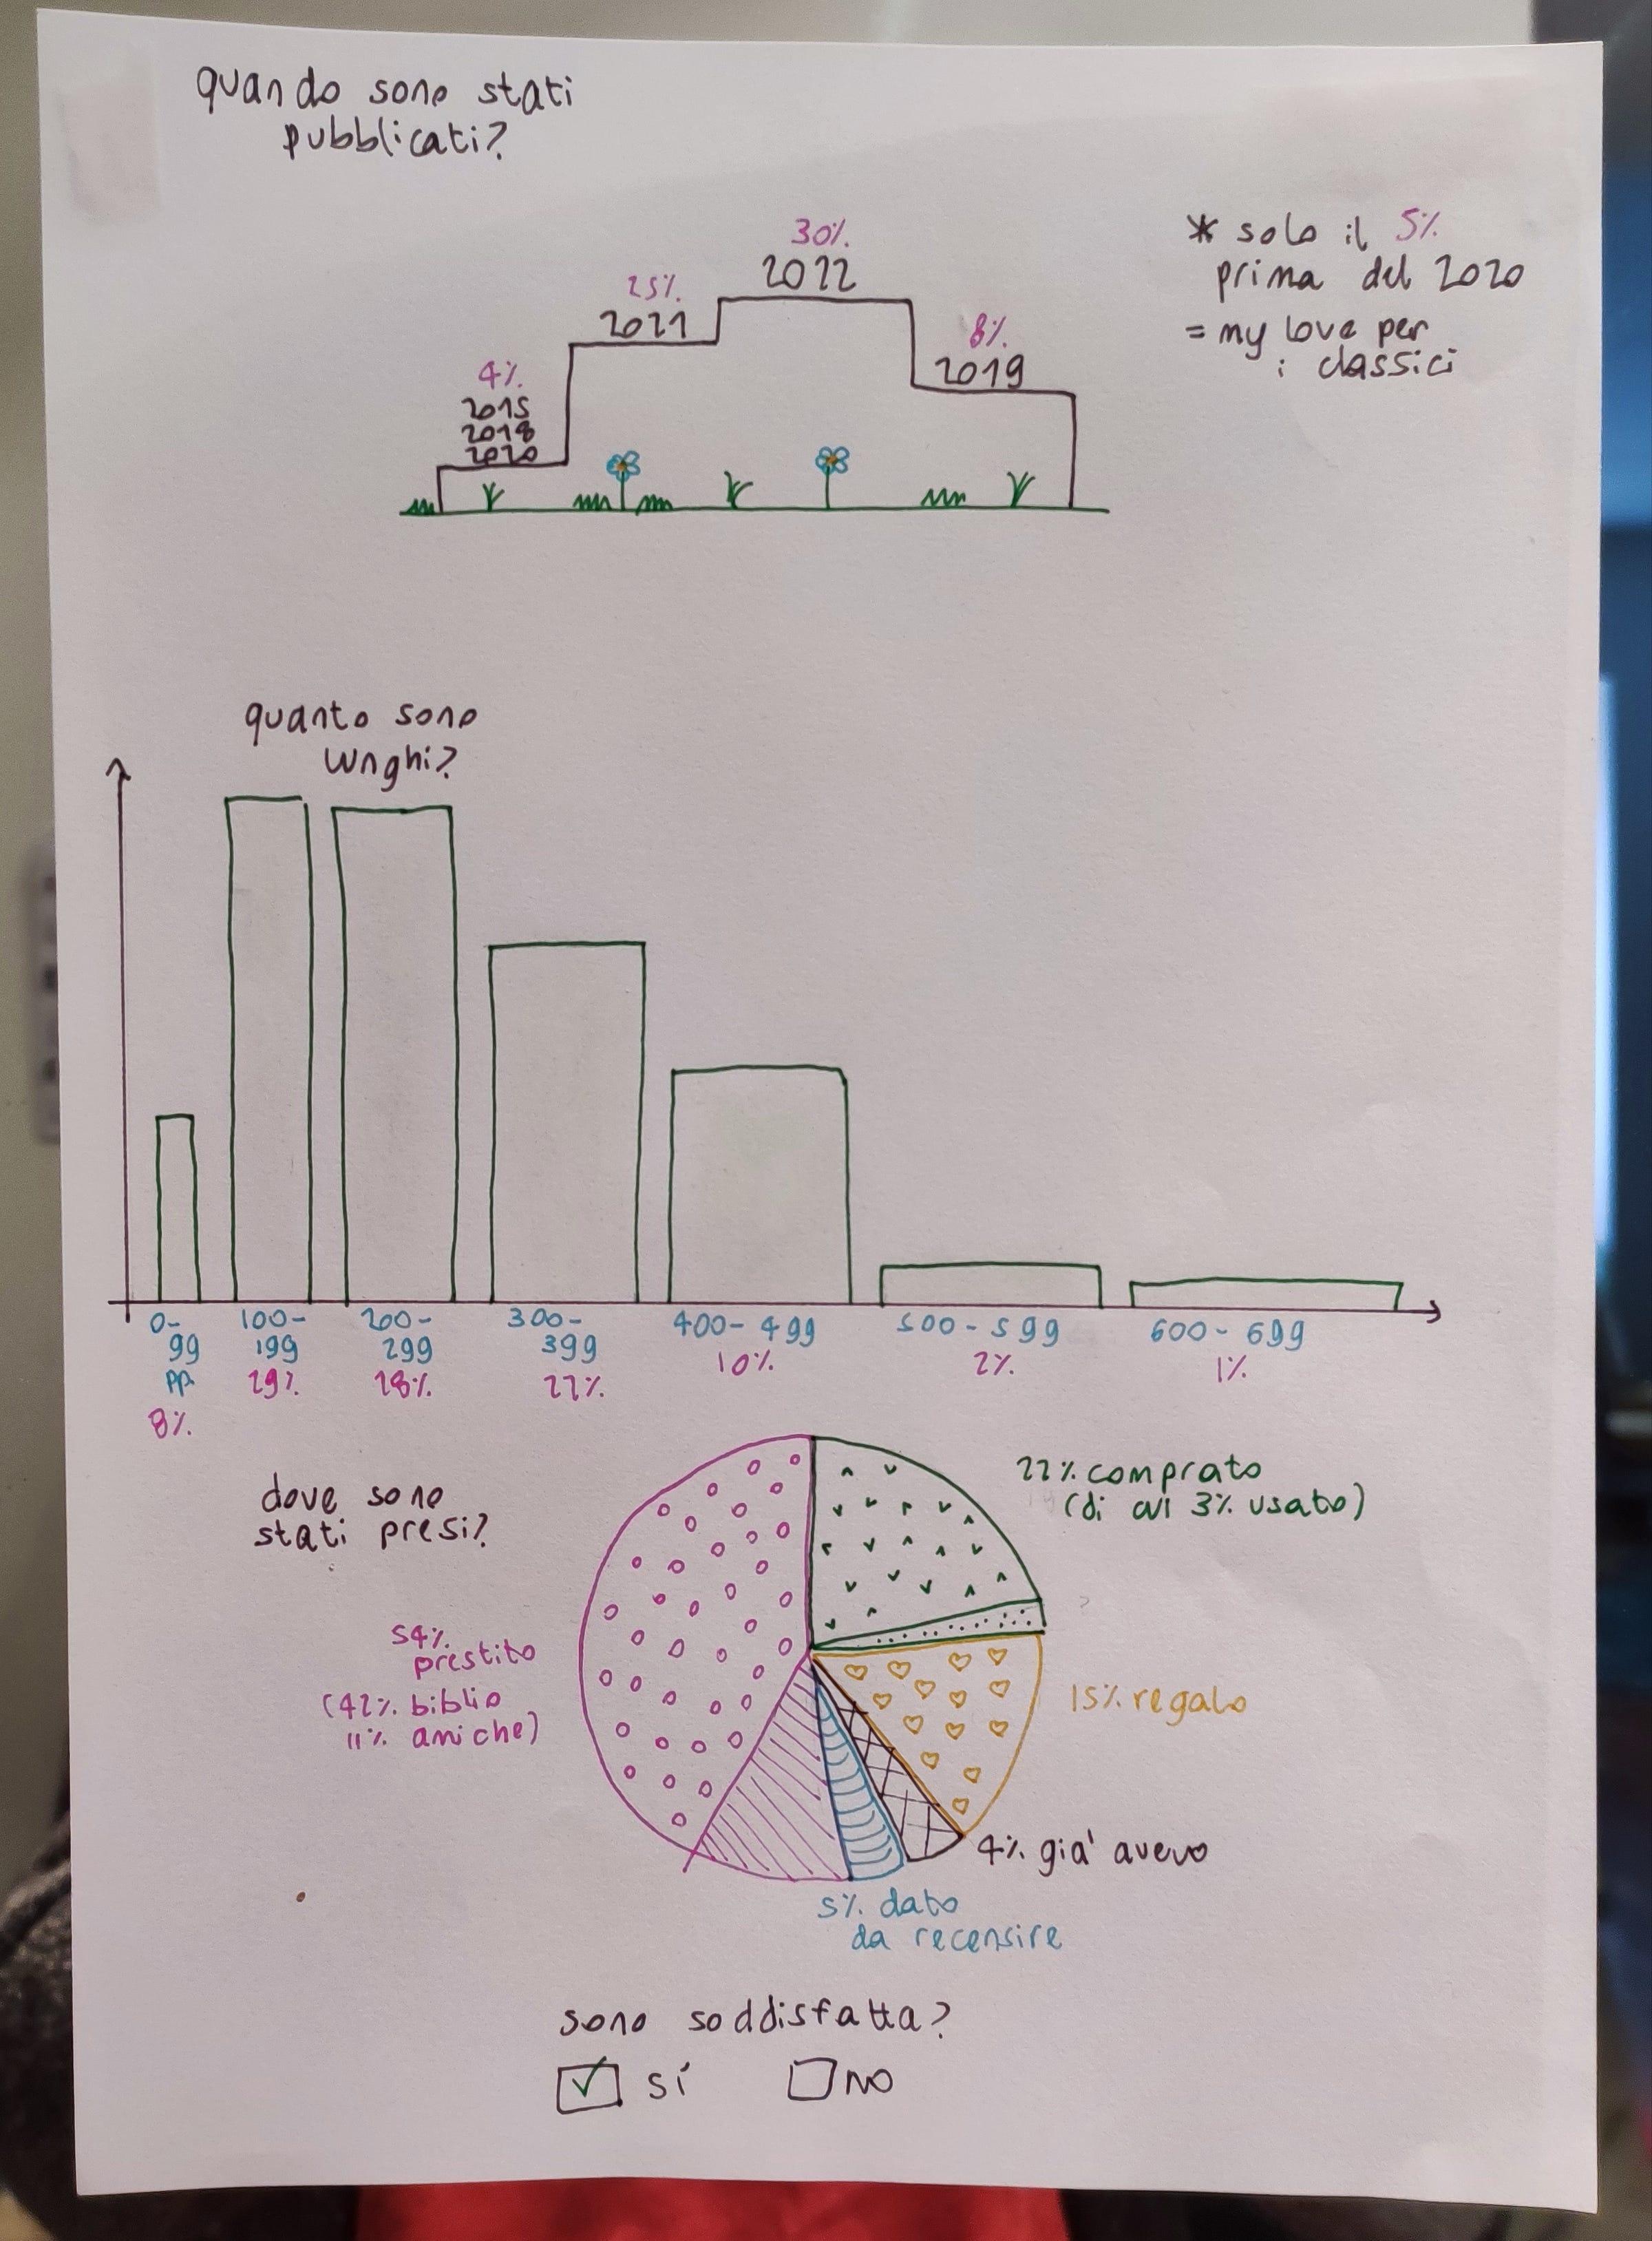 quando sono stati
pubblicati?
* solo il 5%
prima del 2020
= my love per
i classici
30%
2022
25%
2021
8%
2019
4%
2015
2018
2020
quanto sono
lunghi?
0-
99
pp.
8%
100-
199
29%
200-
299
28%
300-
399
22%
400-499
10%
500-599
2%
600-699
1%
dove sono
stati presi?
22% comprato
(di cui 3% usato)
54%
prestito
(42% biblio
11% amiche)
15% regalo
4% già avevo
5% dato
da recensire
sono soddisfatta?
sí
no